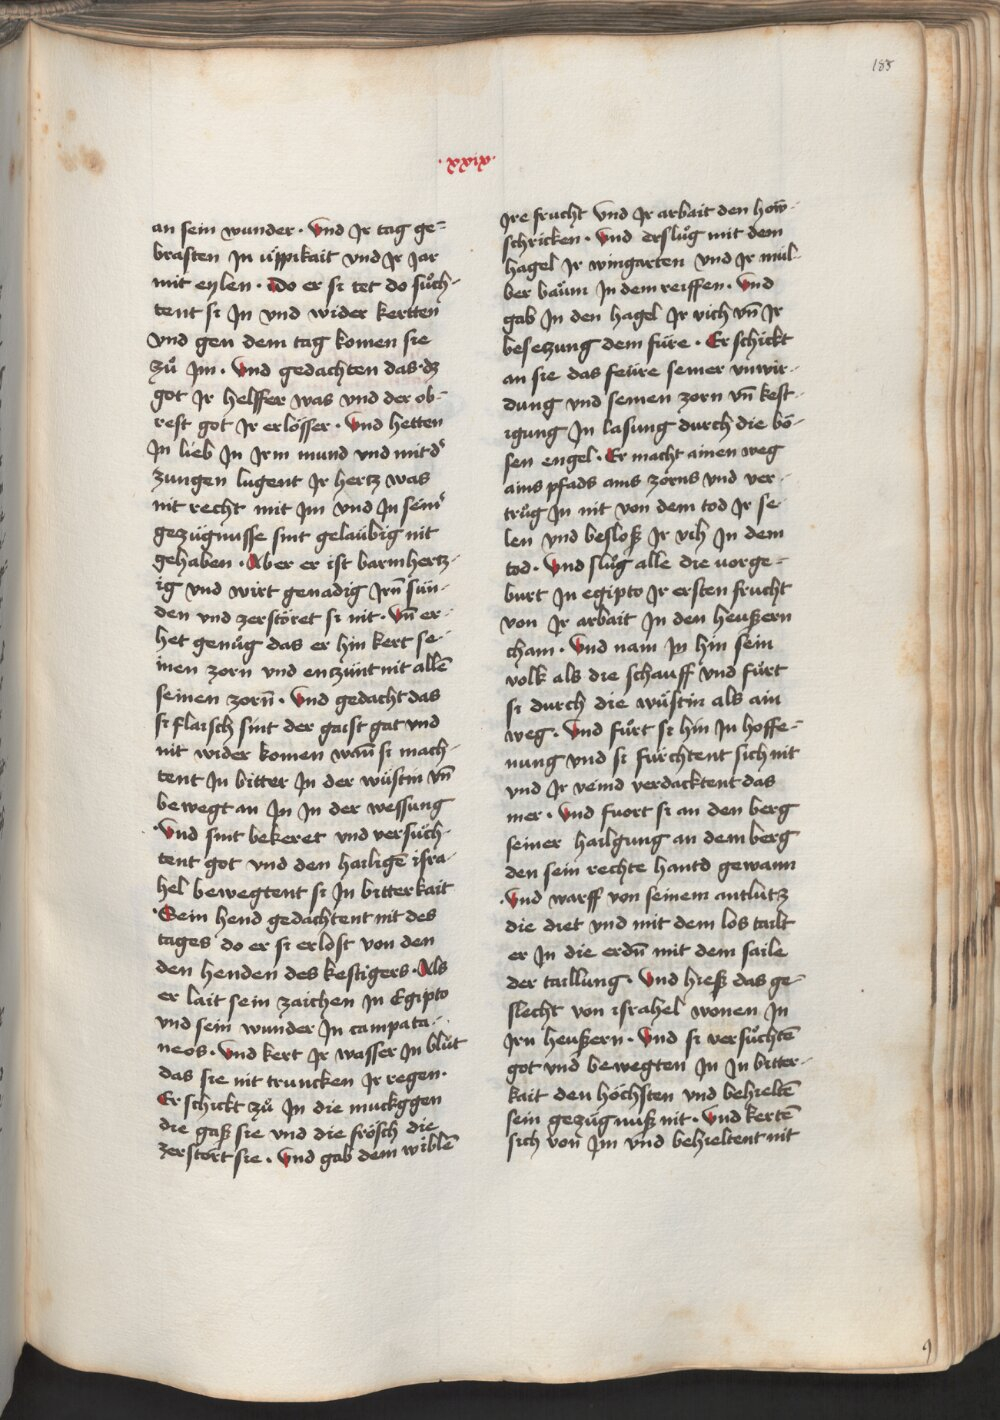 188
·xxix·
an sein wunder · Vnd Jr tag ge=
brasten Jn üppikait vnd Jr Jar
mit eylen · Do er si tet do sůch-
tent si Jn vnd wider kertten
vnd gen dem tag komen sie
zů Jm · Vnd gedachten das · dz
got Jr helffer was vnd der ob-
rest got Jr erlösser · Vnd hetten
Jn lieb Jn Jrm mund vnd mit d'
zungen lugent Jr hertz was
nit recht mit Jm vnd Jn sein'
gezügnusse sint gelaübig nit
gehaben · Aber er ist barmhertz-
ig vnd wirt genadig Jrn̄ sün-
den vnd zerstöret si nit · Vn̄ er-
het genůg das er hin kert se-
inen zorn vnd entzünt nit allē
seinen zorn̄ · Vnd gedacht das
si flaisch sint der gaist gat vnd
nit wider komen wan̄ si mach-
tent Jn bitter Jn der wüstin vn̄
bewegt an Jn Jn der wessung
· Vnd sint bekeret vnd versůch-
tent got vnd den hailigē isra-
hel bewegtent si Jn bitterkait
· Sein hend gedachtent nit des
tages do er si erlost von den
den henden des kestigers · Als
er lait sein zaichen Jn Egipto
vnd sein wunder Jn campata-
neos · Vnd kert Jr wasser Jn blůt
das sie nit truncken Jr regen ·
Er schickt zů Jn die muckggen
die gaß sie vnd die frösch die
zerstört sie · Vnd gab dem wiblē
Jre frucht vnd Jr arbait den how-
schricken · Vnd erslůg mit dem
hagel Jr wingarten vnd Jr mul-
ber baům Jn dem reiffen · Vnd
gab Jn den hagel Jr vich vn̄ Jr
besetzung dem füre · Er schickt
an sie das feüre seiner vnwir-
dung vnd seinen zorn vn̄ kest-
igung Jn lasung durch die bö-
sen engel · Er macht ainen weg
ains pfads ains zorns vnd ver-
trůg Jn nit von dem tod Jr se-
len vnd besloß Jr vih Jn dem
tod · Vnd slůg alle die vorge-
burt Jn egipto Jr ersten frucht
von Jr arbait Jn den heußern
cham · Vnd nam Jn hin sein
volk als die schauff vnd fůrt
si durch die wüstin als ain
weg · Vnd fůrt si hin Jn hoffe-
nung vnd si fürchtent sich nit
vnd Jr veind verdacktent das
mer · Vnd fuort si an den berg
seiner hailgung an dem berg
den sein rechte hantd gewann
· Vnd warff von seinem antlütz
die diet vnd mit dem los tailt
er Jn die erdn̄ mit dem saile
der taillung · Vnd hieß das ge-
slecht von israhel wonen Jn
Jrn heußern · Vnd si versůchtē
got vnd bewegten Jn Jn bitter-
kait den höchsten vnd behieltē
sein gezügnuß nit · Vnd kertē
sich von Jm vnd behieltent nit